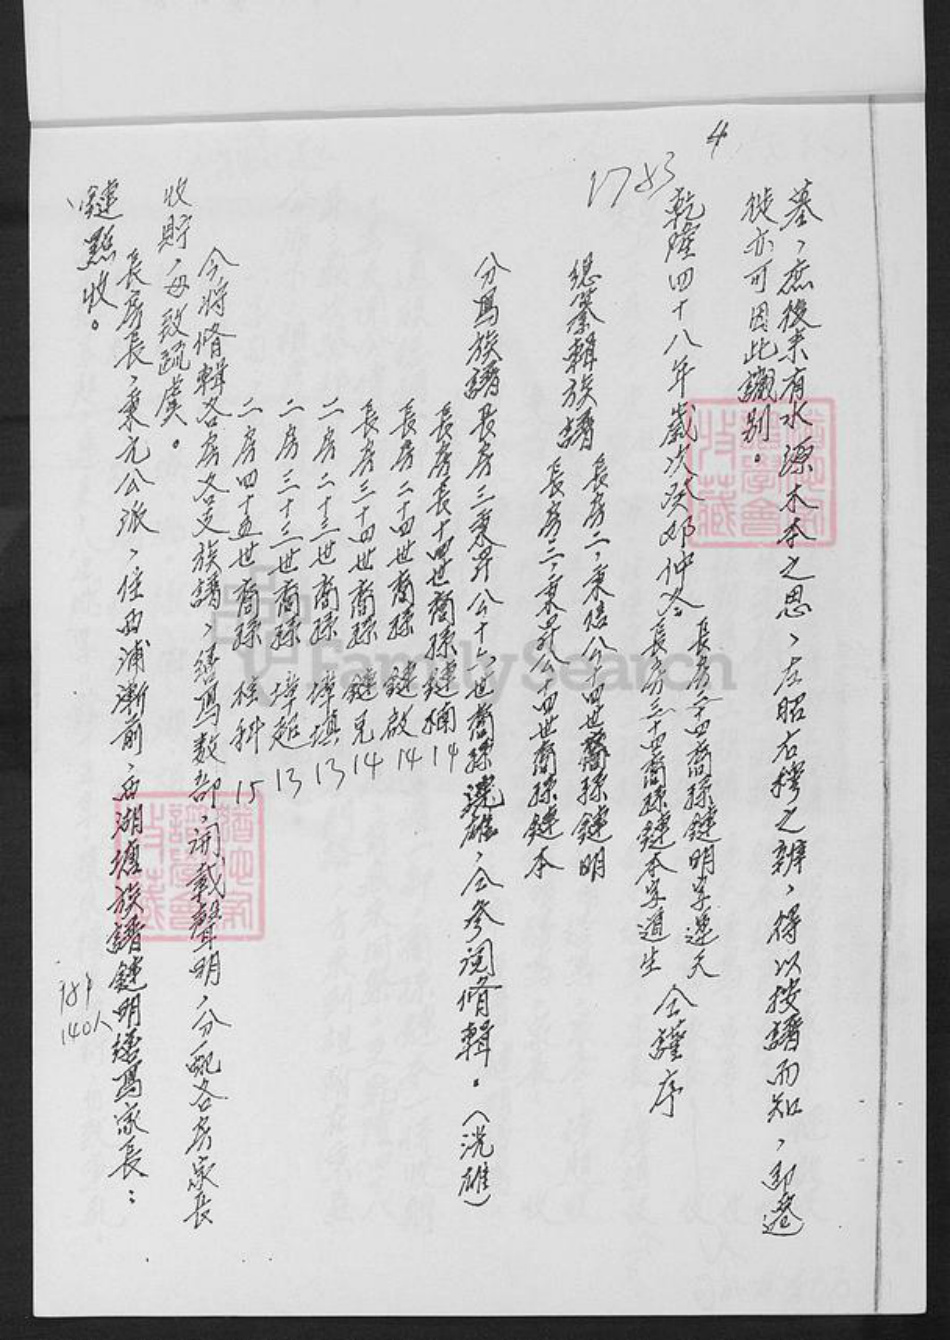 4
墓、庶後来有水源木本之思、左昭右穆之辨、得以按譜而知、即遷
徙亦可因此識别。
1783
乾隆四十八年歲次癸卯仲冬
長房二十四世裔孫鏈明字選天
長房三十四世裔孫鏈本字道生
仝謹序
總纂輯族譜
長房二、秉信公十四世裔孫鏈明
長房三、秉昇公十四世裔孫鏈本
分寫族譜長房三秉昇公十六世裔孫洸雄、仝參閲脩輯。(洸雄)
長房長十四世裔孫鏈楠 14
長房二十四世裔孫 鏈啟 14
長房三十四世裔孫 鏈兄 14
二房二十三世裔孫 埠填 13
二房三十三世裔孫 埠超 13
二房四十五世裔孫 桂科 15
今将脩輯各房各支族譜、繕寫数部、開載聲明、分配各房家長
收貯、毋致疏虞。
長房長、秉元公派、住西浦漸前、西湖墘族譜鏈明繕寫家長:
鏈點收。
140人
FamilySearch